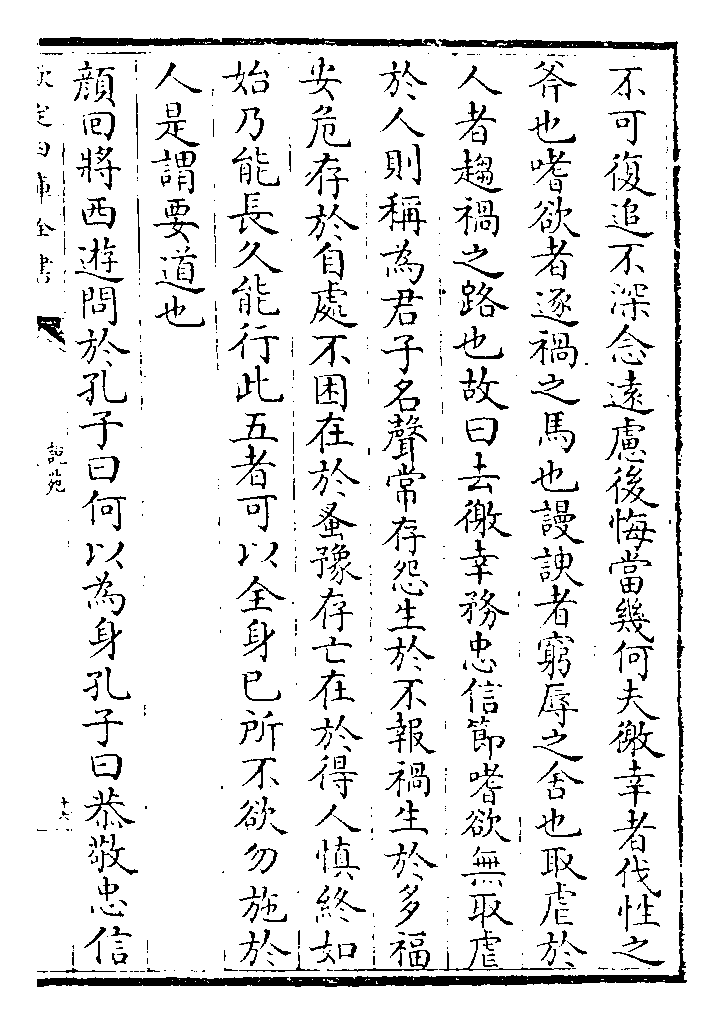 不可復追不深念遠慮後悔當幾何夫徼幸者伐性之
斧也嗜欲者逐禍之馬也謾諛者窮辱之舍也取虐於
人者趨禍之路也故曰去徼幸務忠信節嗜欲無取虐
於人則稱為君子名聲常存怨生於不報禍生於多福
安危存於自處不困在於蚤豫存亡在於得人慎終如
始乃能長久能行此五者可以全身已所不欲勿施於
人是謂要道也
顔回將西遊問於孔子曰何以為身孔子曰恭敬忠信
欽定四庫全書
說苑
十六